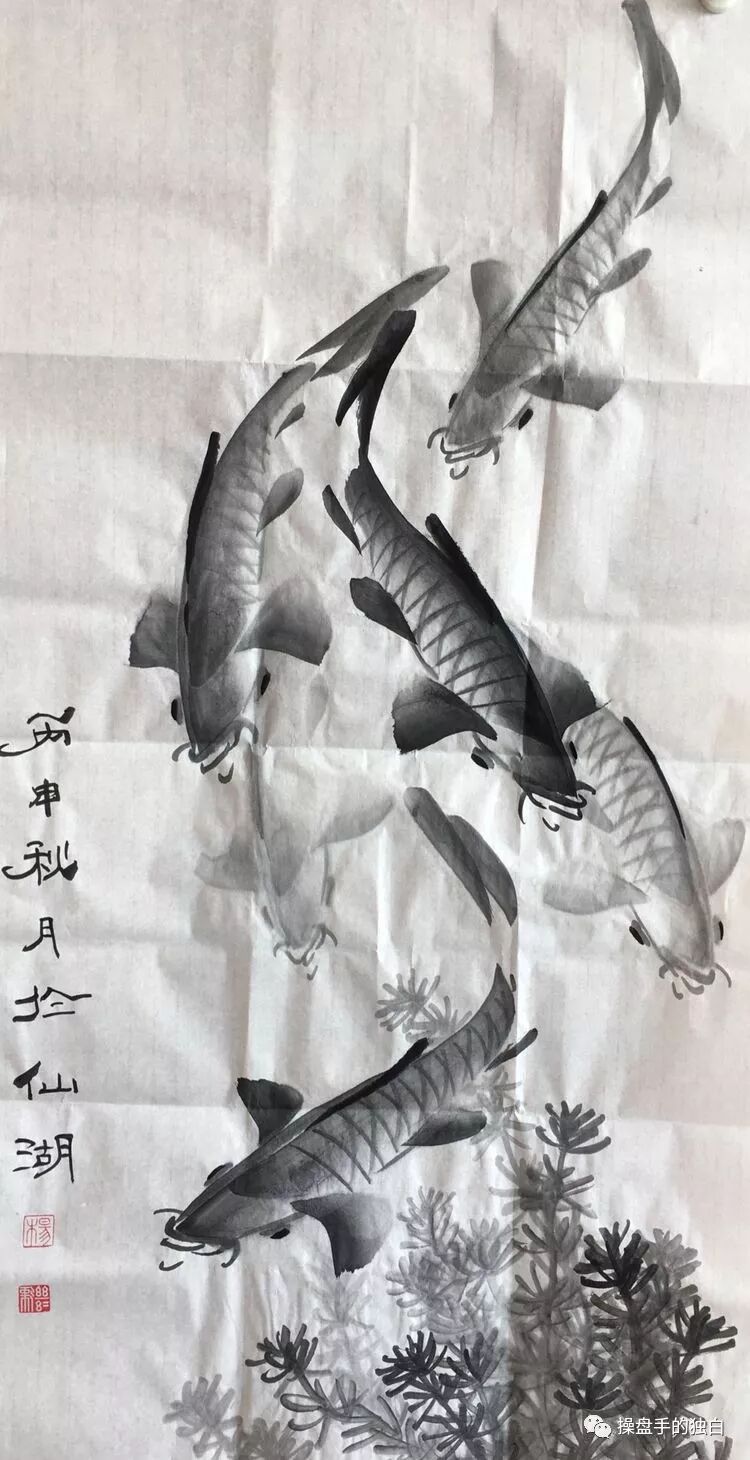 丙申秋月於仙湖
楊
操盘手的独白